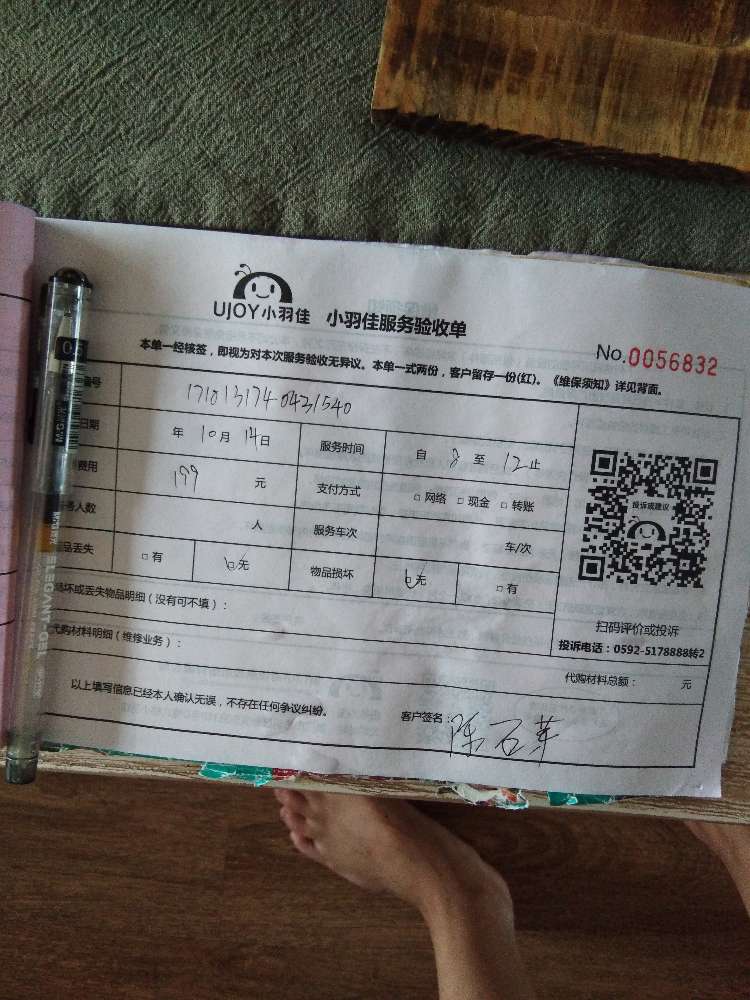 UJOY小羽佳 小羽佳服务验收单
No.0056832
本单一经核签，即视为对本次服务验收无异议。本单一式两份，客户留存一份(红)。《维保须知》详见背面。
编号 1710131740431540
日期 年 10月 14日 服务时间 自 8 至 12止
费用 199 元 支付方式 □网络 □现金 □转账
人数 人 服务车次 车/次
品丢失 □有 □无 物品损坏 □无 □有
投诉或建议
扫码评价或投诉
投诉电话：0592-5178888转2
损坏或丢失物品明细（没有可不填）：
代购材料明细（维修业务）：
代购材料总额： 元
以上填写信息已经本人确认无误，不存在任何争议纠纷。
客户签名： 陈石
0.5
M&G
ELEGANT-GEL